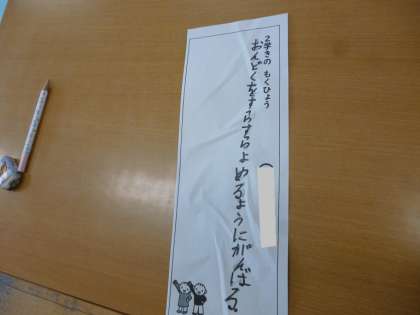 2学きの もくひょう
おんどくをすらすらよめるようにがんばる